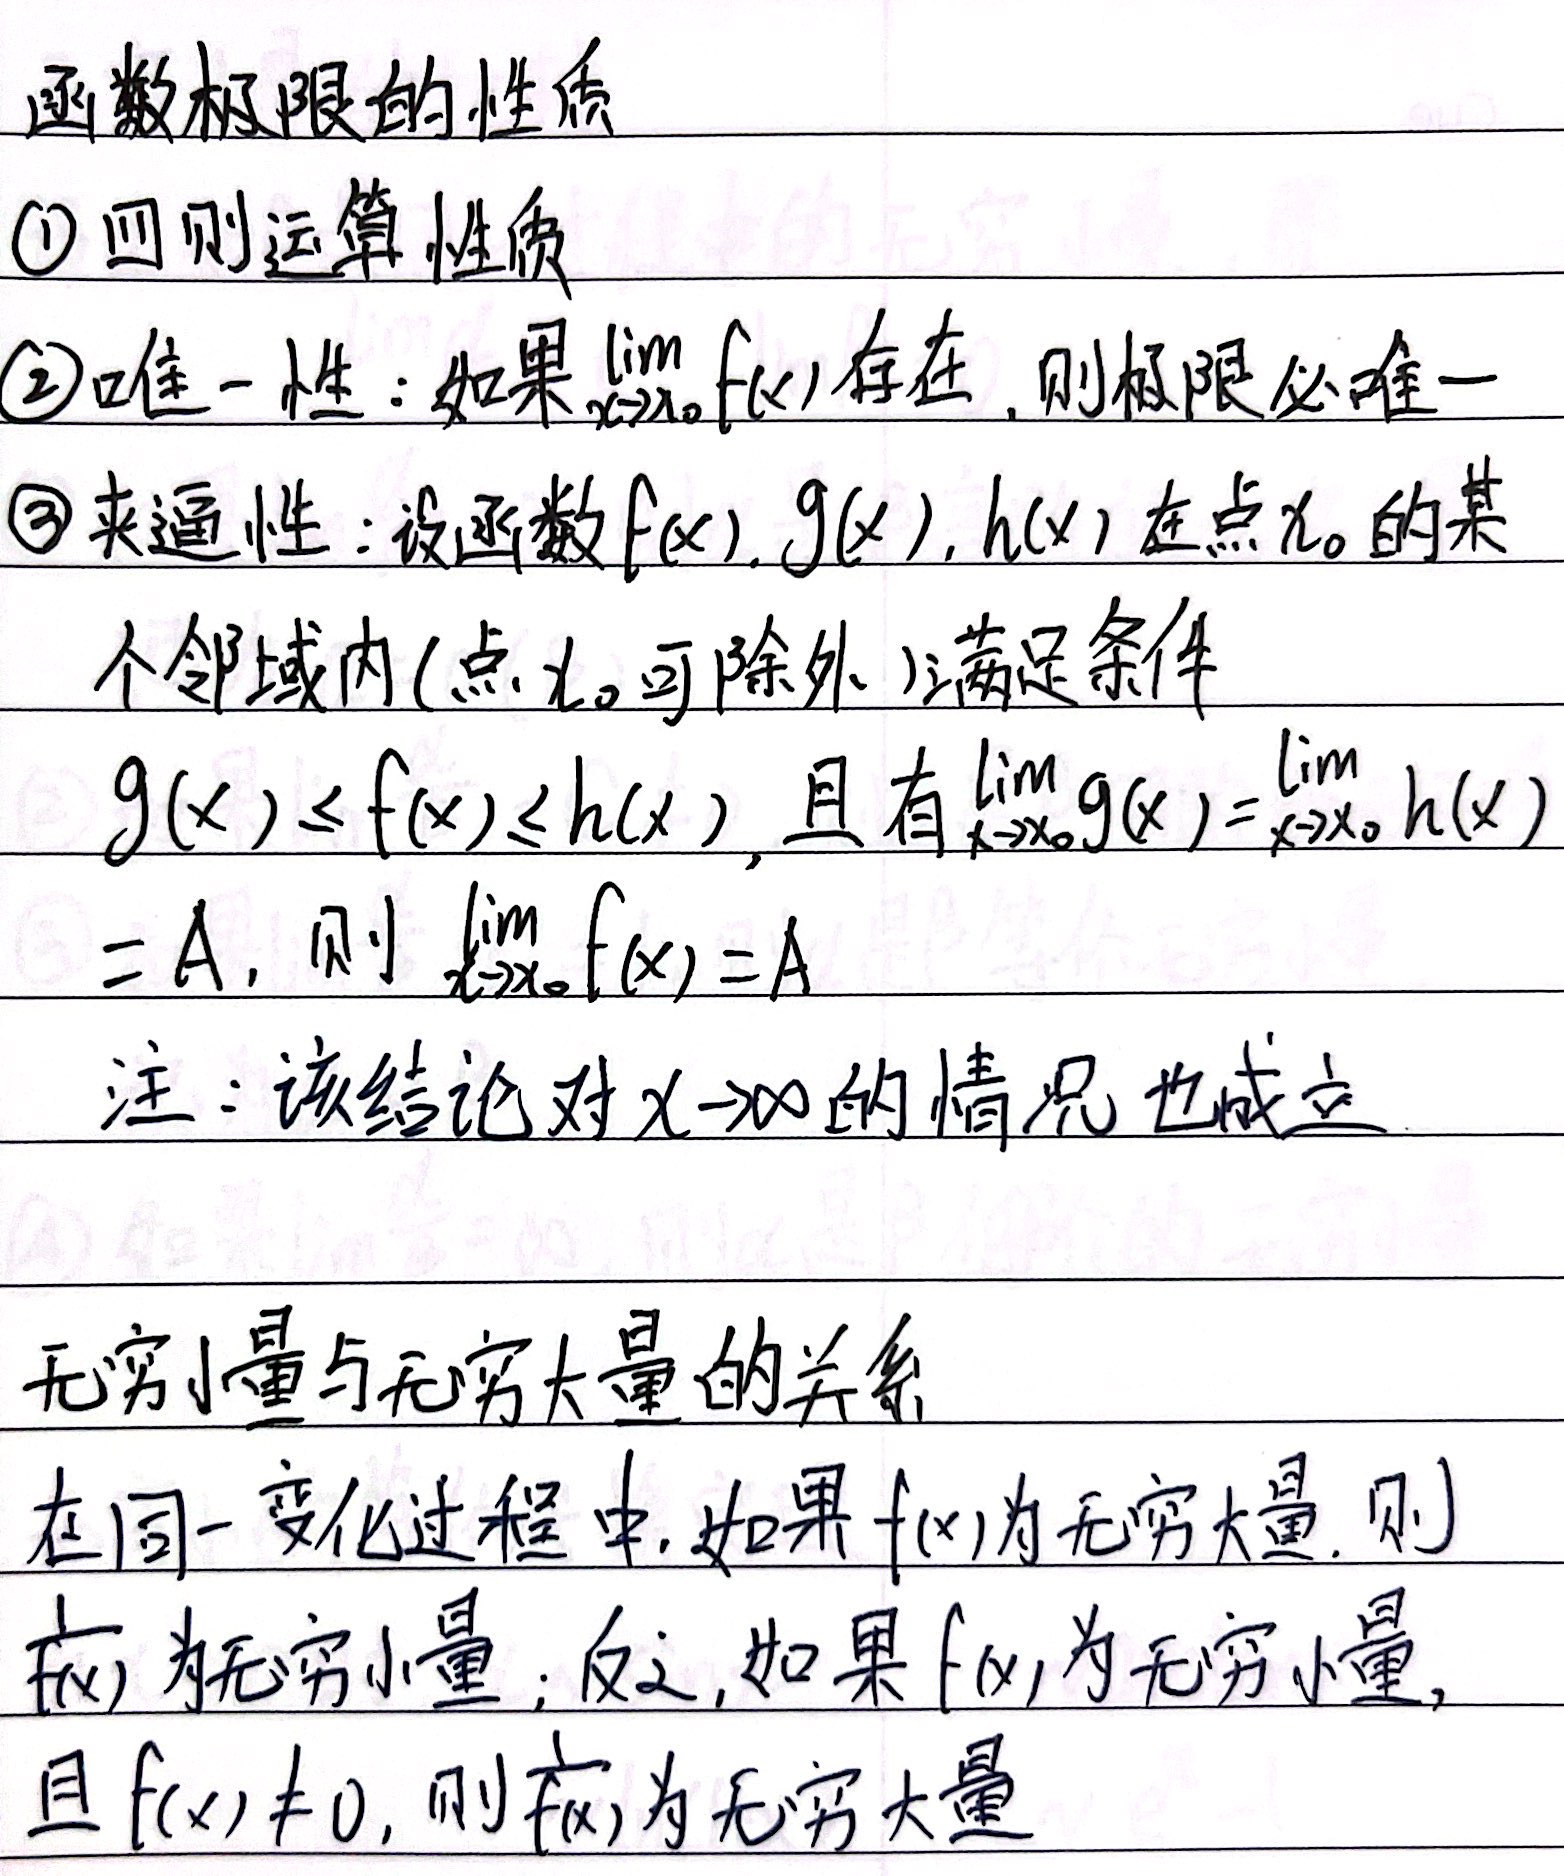 函数极限的性质
①四则运算性质
②唯一性：如果 lim x→x₀ f(x) 存在，则极限必唯一
③夹逼性：设函数f(x)，g(x)，h(x) 在点x₀的某
个邻域内(点x₀可除外)满足条件
g(x)≤f(x)≤h(x)，且有 lim x→x₀ g(x)= lim x→x₀ h(x)
=A，则 lim x→x₀ f(x)=A
注：该结论对x→∞的情况也成立
无穷小量与无穷大量的关系
在同一变化过程中，如果f(x)为无穷大量，则
1/f(x) 为无穷小量；反之，如果f(x)为无穷小量，
且f(x)≠0，则1/f(x)为无穷大量